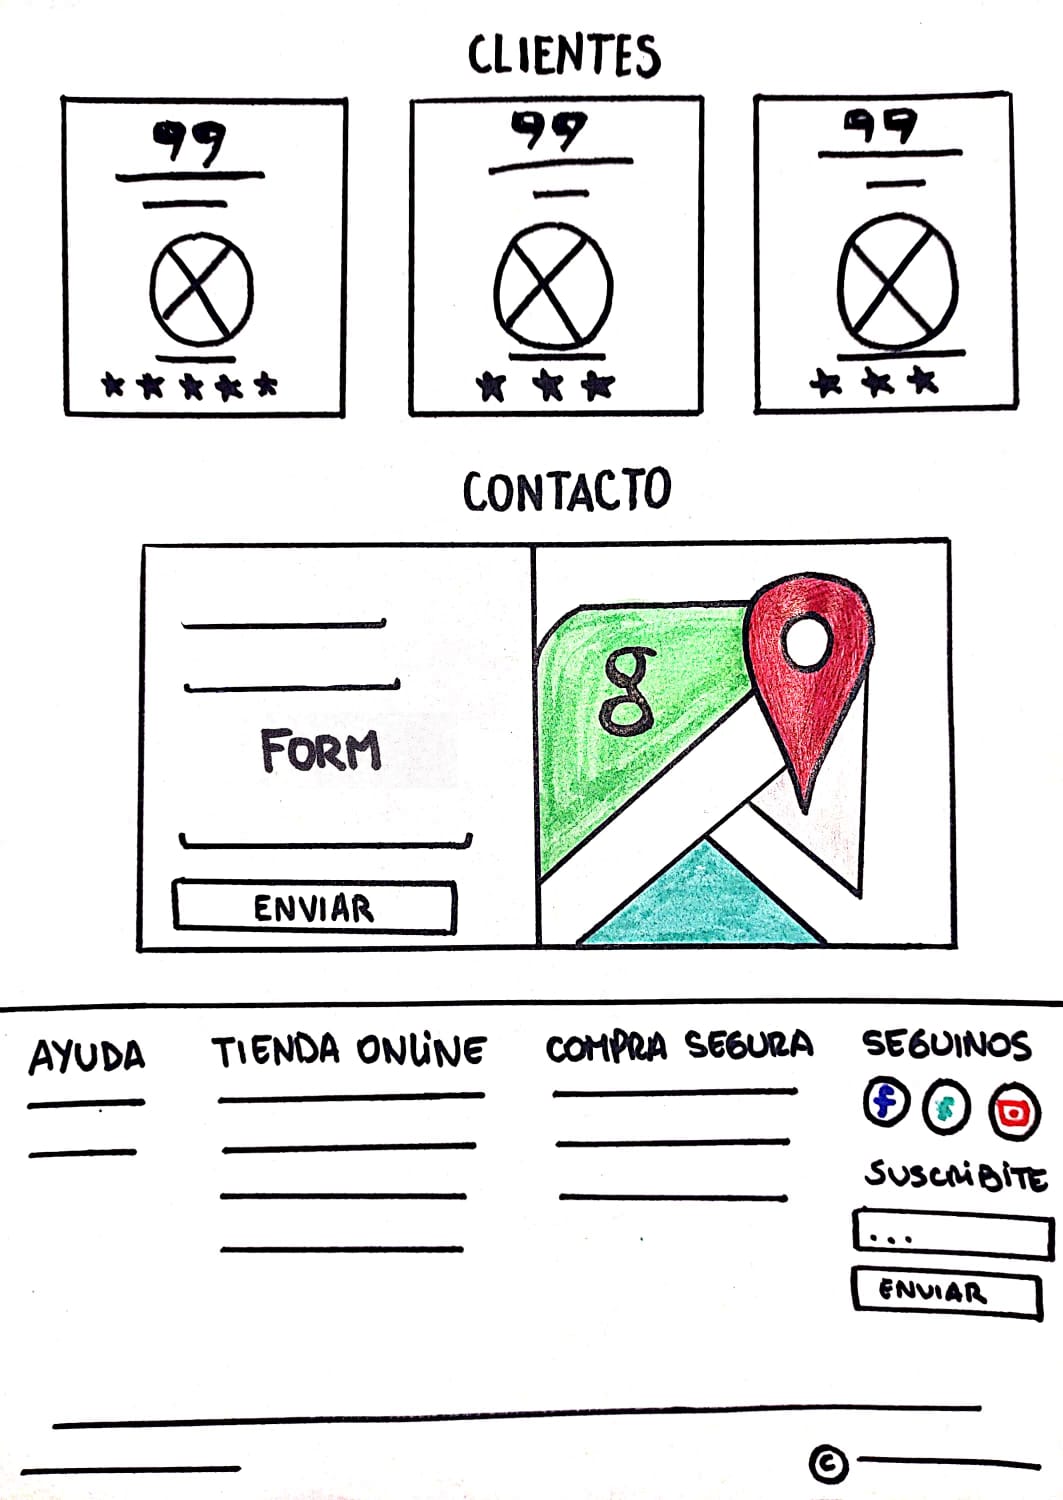 CLIENTES
99 99 99
CONTACTO
g
FORM
ENVIAR
AYUDA TIENDA ONLINE COMPRA SEGURA SEGUINOS
f f
SUSCRIBITE
...
ENVIAR
©